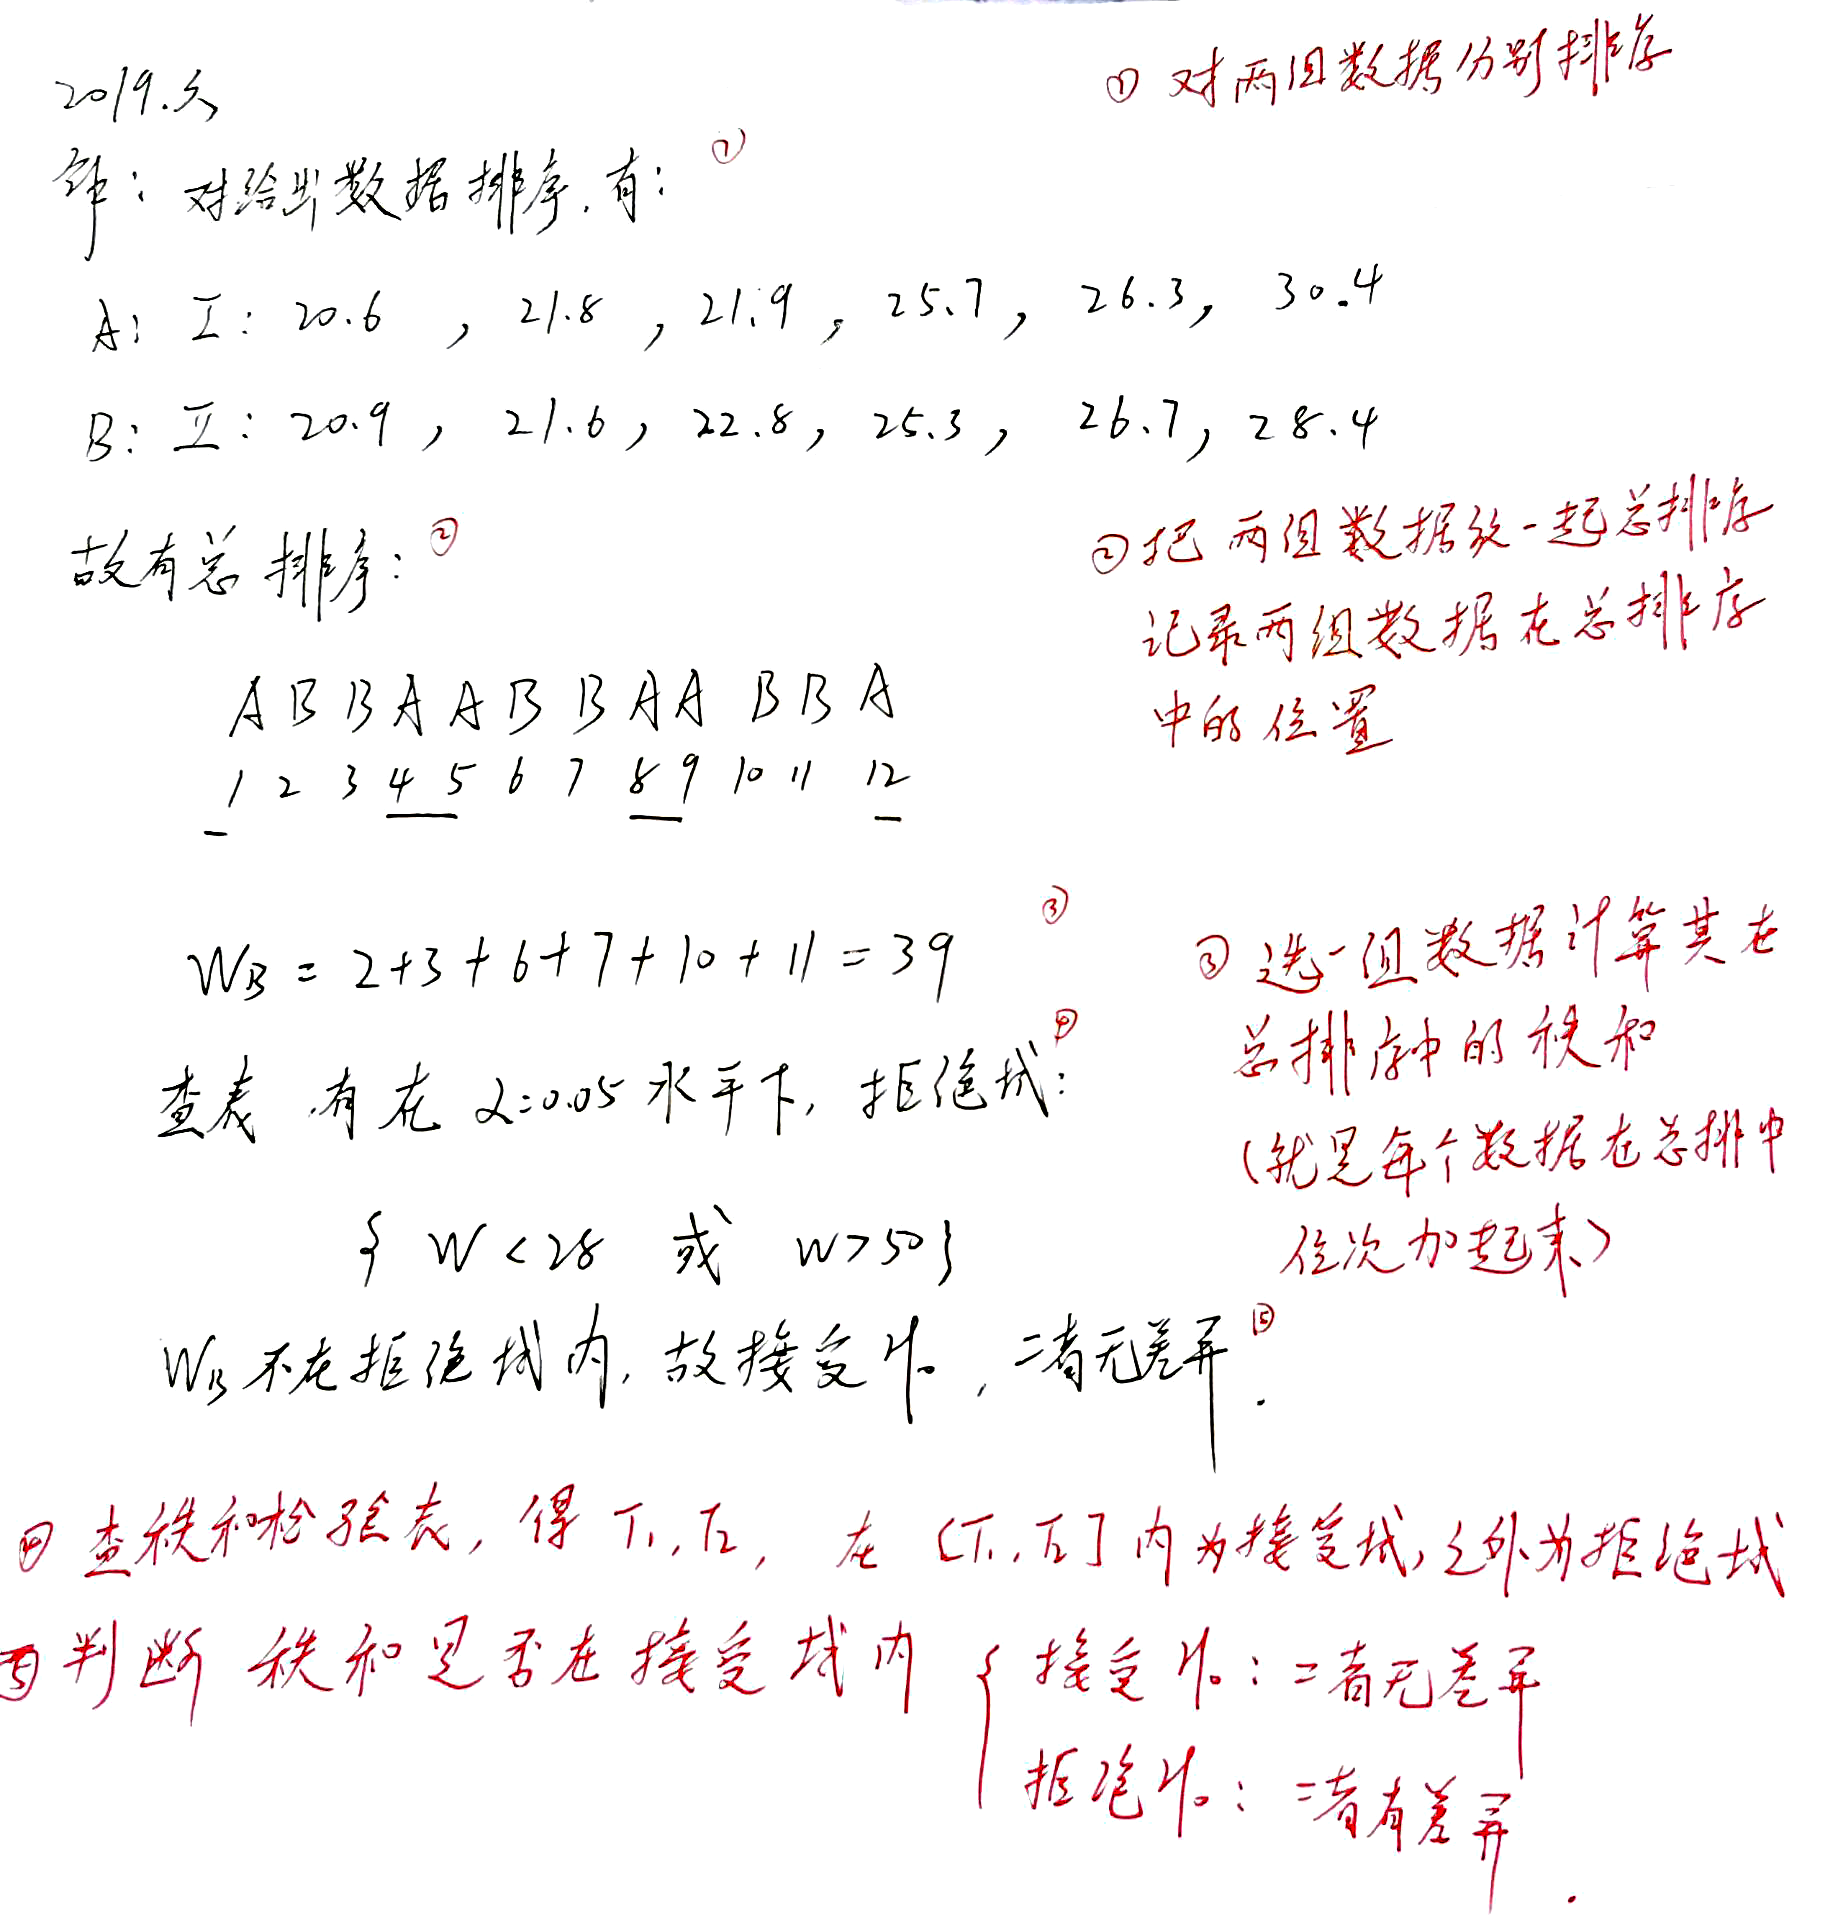 ① 对两组数据分别排序
2019.六
解：对给出数据排序,有：①
A: I: 20.6 , 21.8 , 21.9 , 25.7 , 26.3 , 30.4
B: II: 20.9 , 21.6 , 22.8 , 25.3 , 26.7 , 28.4
故有总排序：②
② 把两组数据放一起总排序
记录两组数据在总排序
中的位置
A B B A A B B A A B B A
1 2 3 4 5 6 7 8 9 10 11 12
W_B = 2+3+6+7+10+11 = 39 ③
③ 选一组数据计算其在
总排序中的秩和
(就是每个数据在总排中
位次加起来)
查表,有在 α=0.05 水平下,拒绝域④：
{ W < 28 或 W > 50 }
W_B 不在拒绝域内,故接受 H₀ , 二者无差异⑤.
④ 查秩和检验表, 得 T₁, T₂, 在 [T₁, T₂] 内为接受域,之外为拒绝域
⑤ 判断秩和是否在接受域内 { 接受 H₀ : 二者无差异
拒绝 H₀ : 二者有差异.